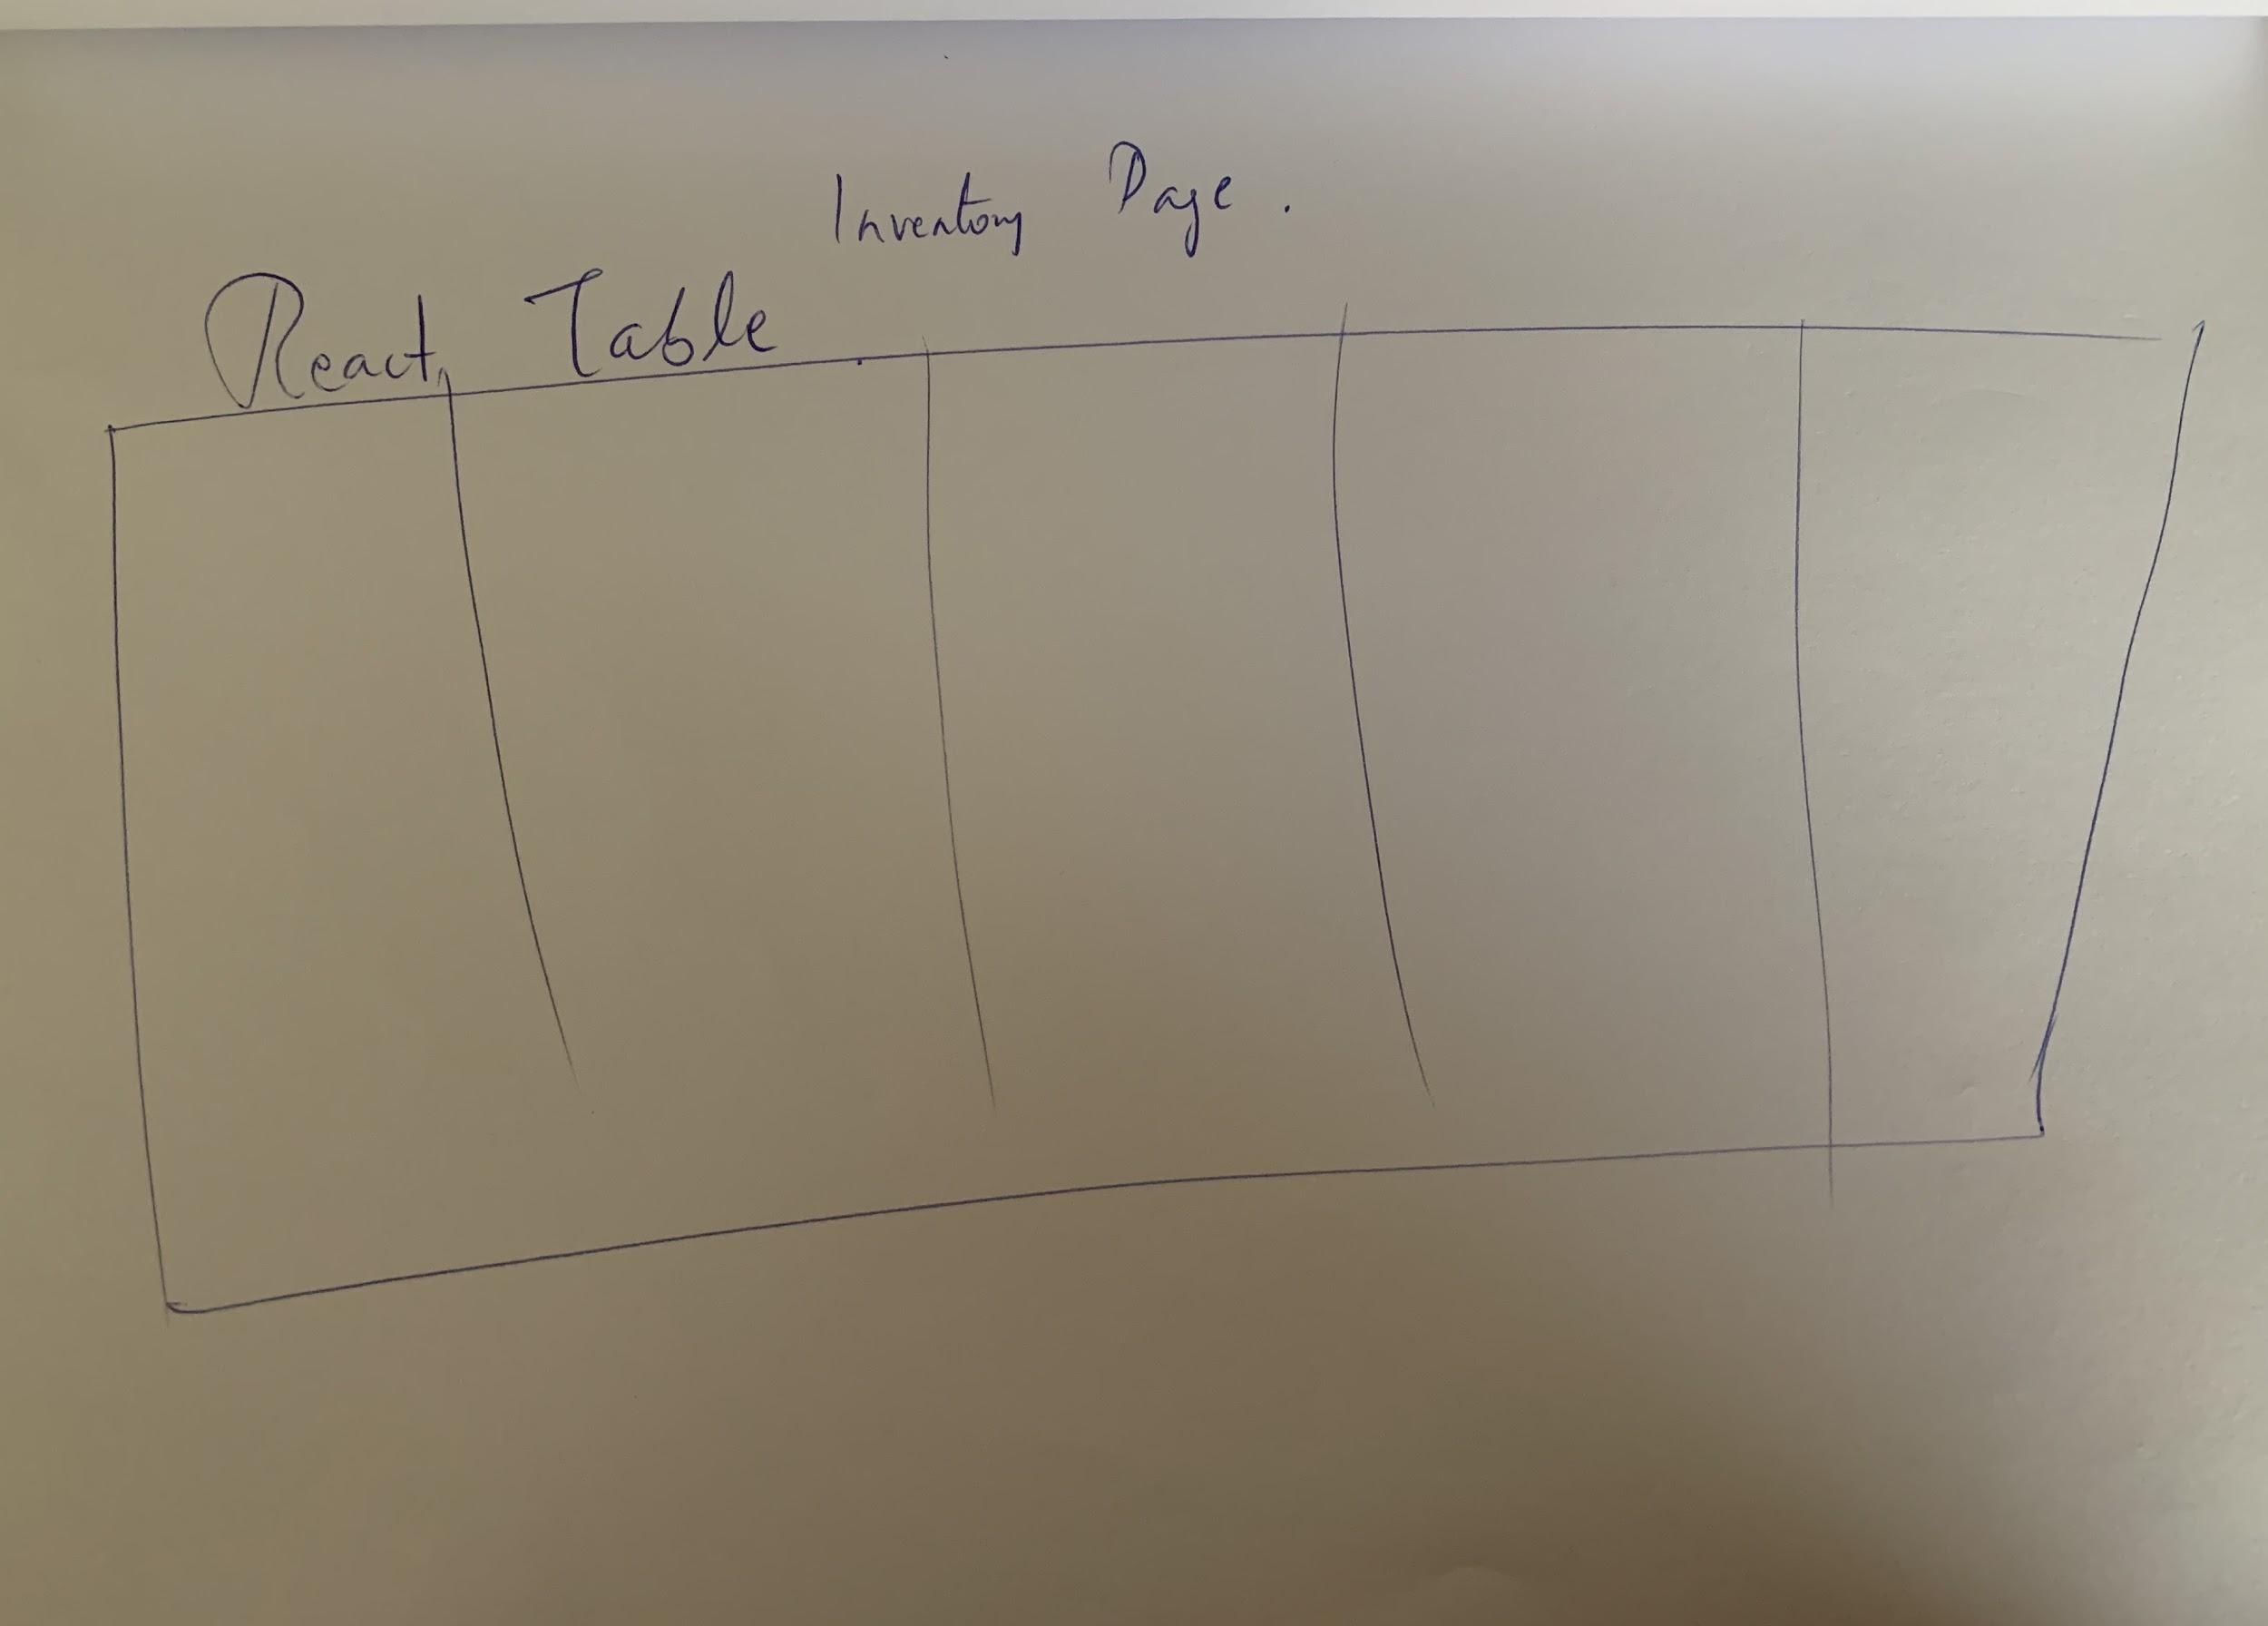 Inventory Page.
React Table